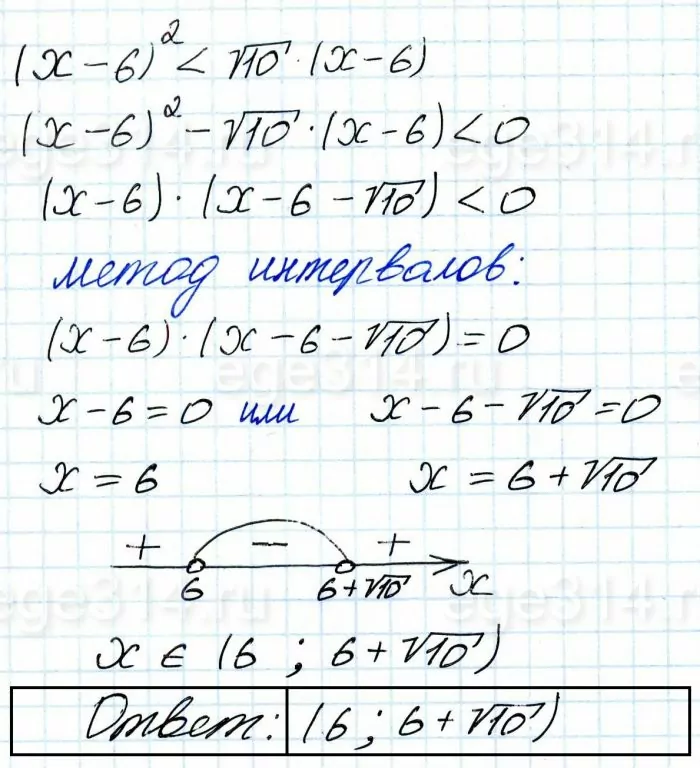 (x − 6)² < √10 · (x − 6)
(x − 6)² − √10 · (x − 6) < 0
(x − 6) · (x − 6 − √10) < 0
метод интервалов:
(x − 6) · (x − 6 − √10) = 0
x − 6 = 0 или x − 6 − √10 = 0
x = 6 x = 6 + √10
+ − +
6 6+√10 x
x ∈ (6 ; 6 + √10)
Ответ: (6 ; 6 + √10)
ege314.ru